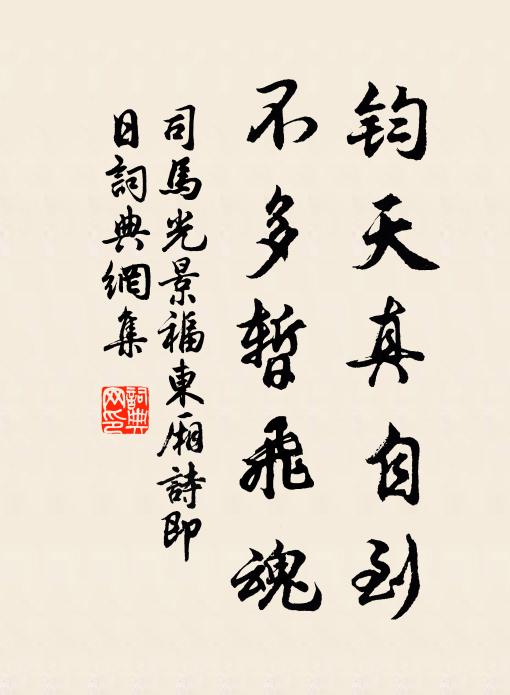 鈞天真自到
不多暫飛魂
司馬光景福東廂詩即
日詞典網集
詞典
网印